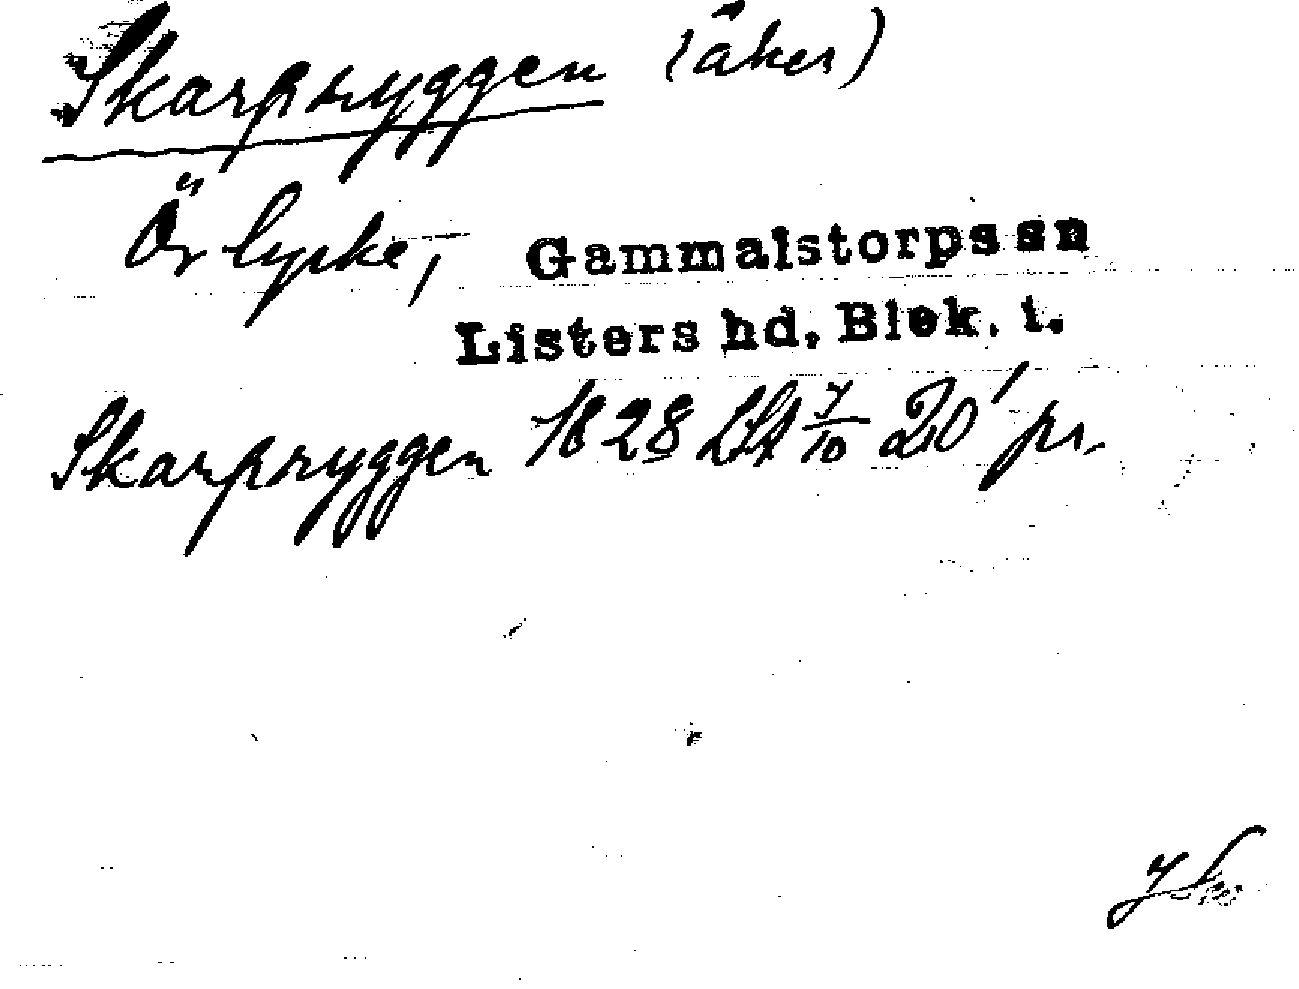 Skarpryggen (åker)
Örlycke, Gammalstorps sn
Listers hd. Blek. l.
Skarpryggen 1828 LSA 7/10 20' pr.